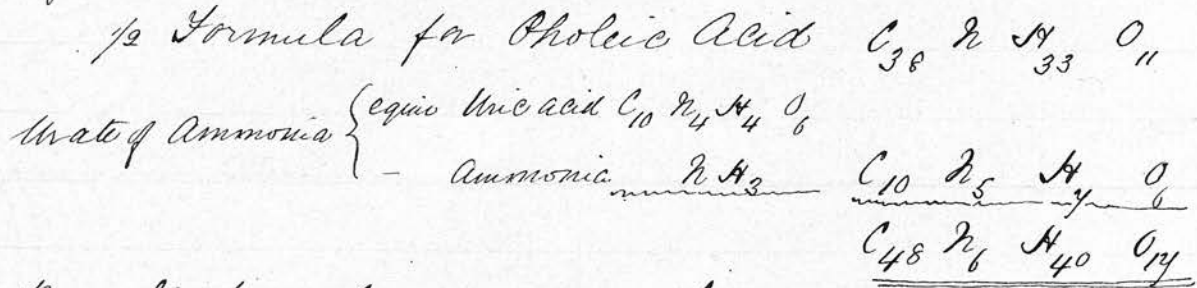 1/2 Formula for Choleic Acid C38 N H33 O11
Urate of Ammonia { equiv Uric acid C10 N4 H4 O6
- Ammonia N H3 C10 N5 H7 O6
C48 N6 H40 O17